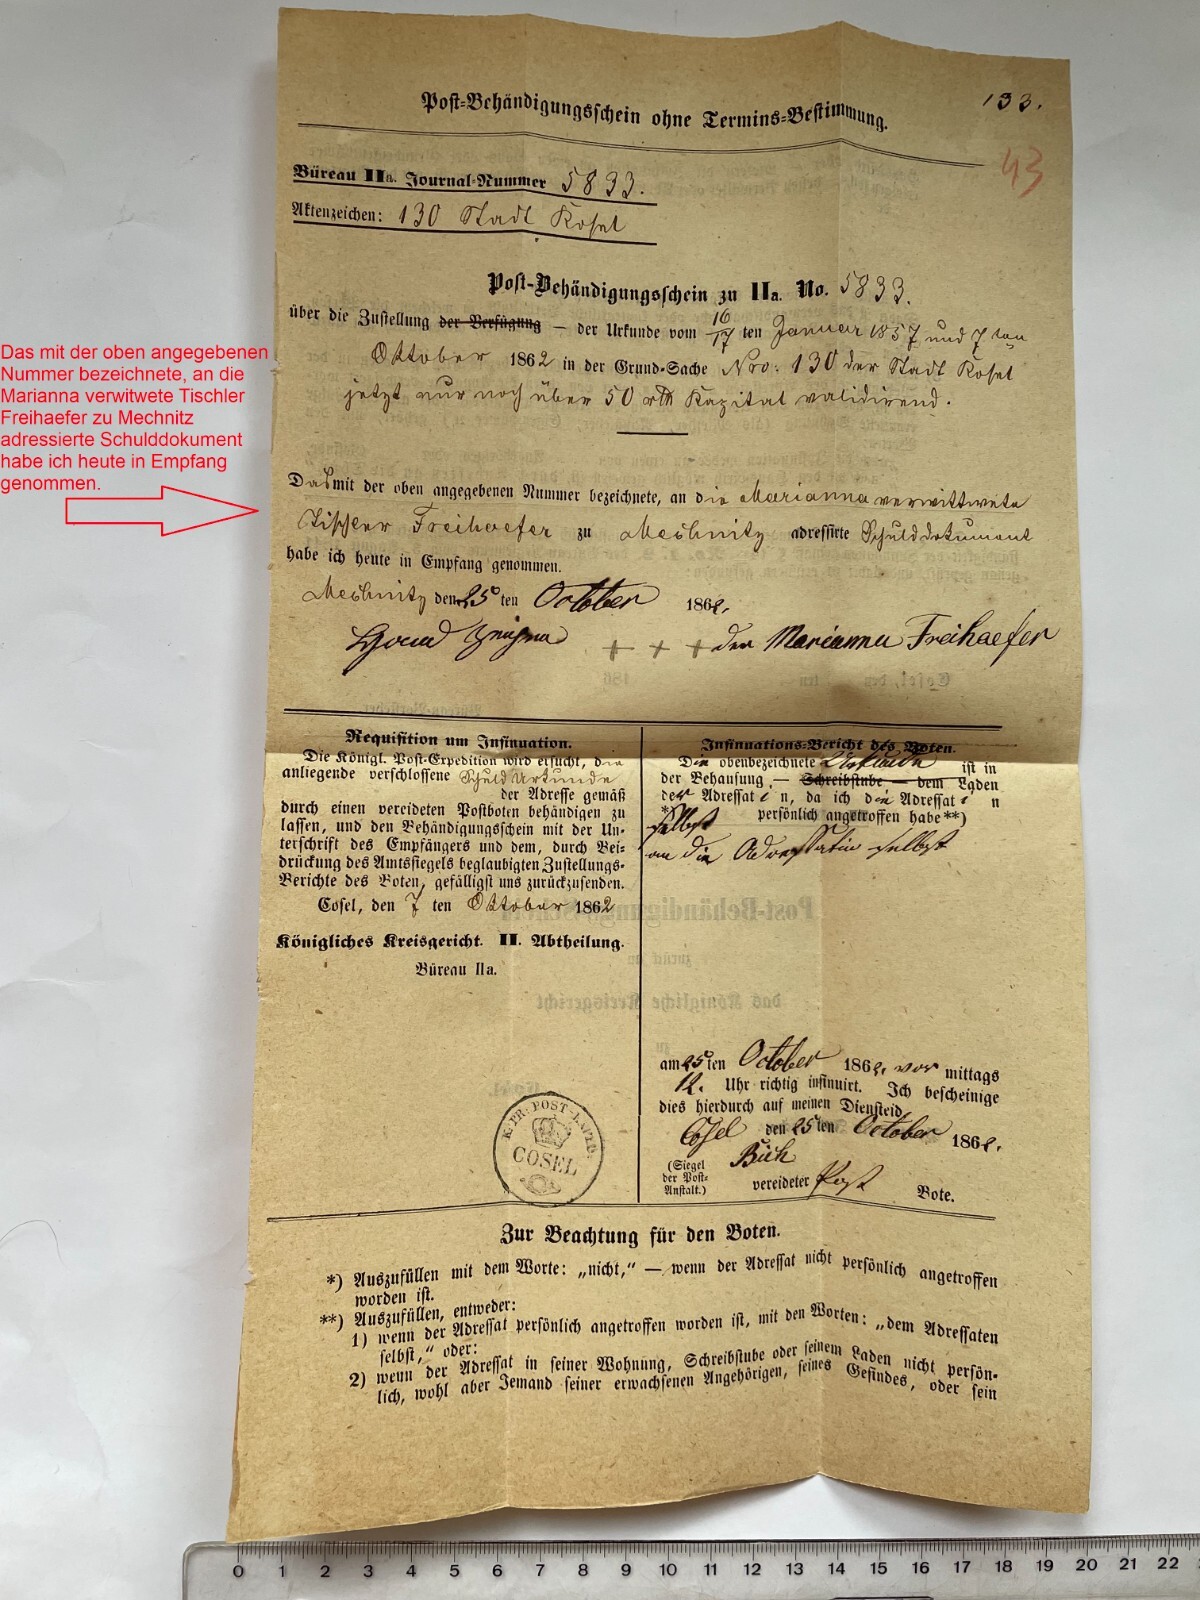 Post-Behändigungsschein ohne Termins-Bestimmung.
193.
43
Büreau IIa. Journal-Nummer 5833.
Aktenzeichen: 130 Stadt Kosel
Post-Behändigungsschein zu IIa. No. 5833.
über die Zustellung der Verfügung — der Urkunde vom 16/17 ten Januar 1857 und 7 ten
Oktober 1862 in der Grund-Sache Nro: 130 der Stadt Kosel
jetzt nur noch über 50 rth Kapital validirend.
Das mit der oben angegebenen
Nummer bezeichnete, an die
Marianna verwitwete Tischler
Freihaefer zu Mechnitz
adressierte Schulddokument
habe ich heute in Empfang
genommen.
Das mit der oben angegebenen Nummer bezeichnete, an die Marianna verwittwete
Tischler Freihaefer zu Mechnitz adressirte Schulddokument
habe ich heute in Empfang genommen.
Mechnitz den 25 ten October 1862.
+ + + der Marianna Freihaefer
Requisition um Insinuation.
Die Königl. Post-Expedition wird ersucht, die
anliegende verschlossene Schuld Urkunde
der Adresse gemäß
durch einen vereideten Postboten behändigen zu
lassen, und den Behändigungsschein mit der Un-
terschrift des Empfängers und dem, durch Bei-
drückung des Amtssiegels beglaubigten Zustellungs-
Berichte des Boten, gefälligst uns zurückzusenden.
Cosel, den 7 ten Oktober 1862
Königliches Kreisgericht. II. Abtheilung.
Büreau IIa.
K. PR. POST-EXPED.
COSEL
Insinuations-Bericht des Boten.
Die obenbezeichnete Urkunde ist in
der Behausung — Schreibstube — dem Laden
der Adressat i n, da ich die Adressat i n
*) selbst persönlich angetroffen habe **)
an die Adressatin selbst
am 25 ten October 1862. vor mittags
12. Uhr richtig insinuirt. Ich bescheinige
dies hierdurch auf meinen Diensteid.
Cosel den 25 ten October 1862.
(Siegel
der Post-
Anstalt.)
vereideter Post Bote.
Zur Beachtung für den Boten.
*) Auszufüllen mit dem Worte: „nicht,“ — wenn der Adressat nicht persönlich angetroffen
worden ist.
**) Auszufüllen, entweder:
1) wenn der Adressat persönlich angetroffen worden ist, mit den Worten: „dem Adressaten
selbst,“ oder:
2) wenn der Adressat in seiner Wohnung, Schreibstube oder seinem Laden nicht persön-
lich, wohl aber Jemand seiner erwachsenen Angehörigen, seines Gesindes, oder sein
0 1 2 3 4 5 6 7 8 9 10 11 12 13 14 15 16 17 18 19 20 21 22